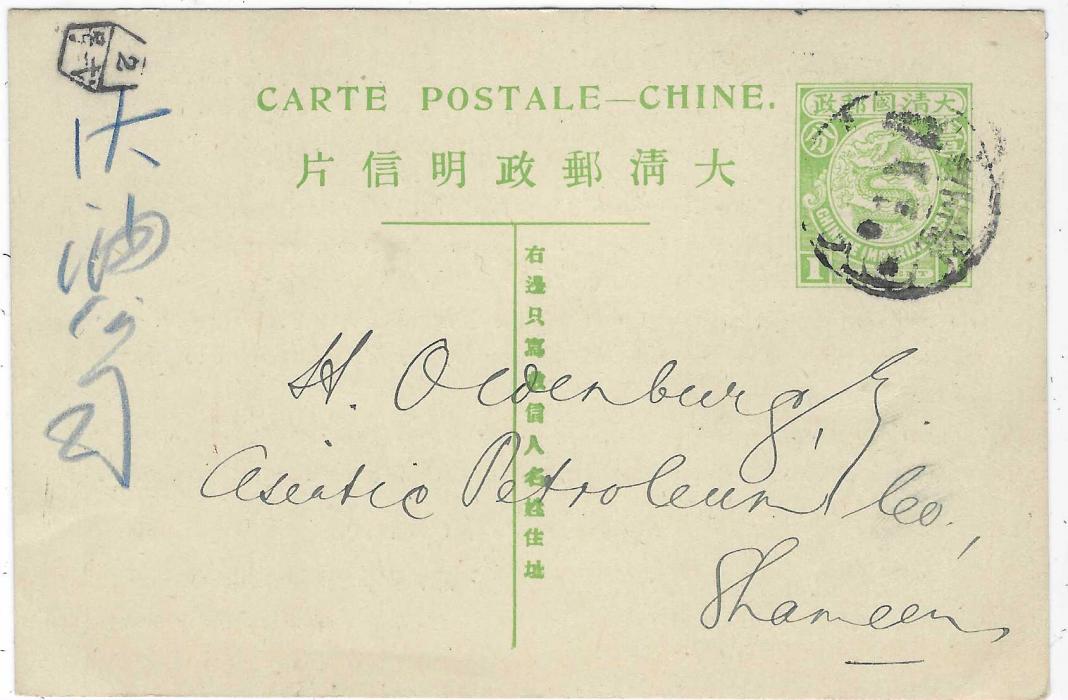 CARTE POSTALE—CHINE.
片信明政郵清大
政郵國清大
分
CHINESE IMPERIAL POST
1
右邊只寫收信人名姓住址
H. Oldenburg, E.
Asiatic Petroleum Co.,
Shameen
油公司
2